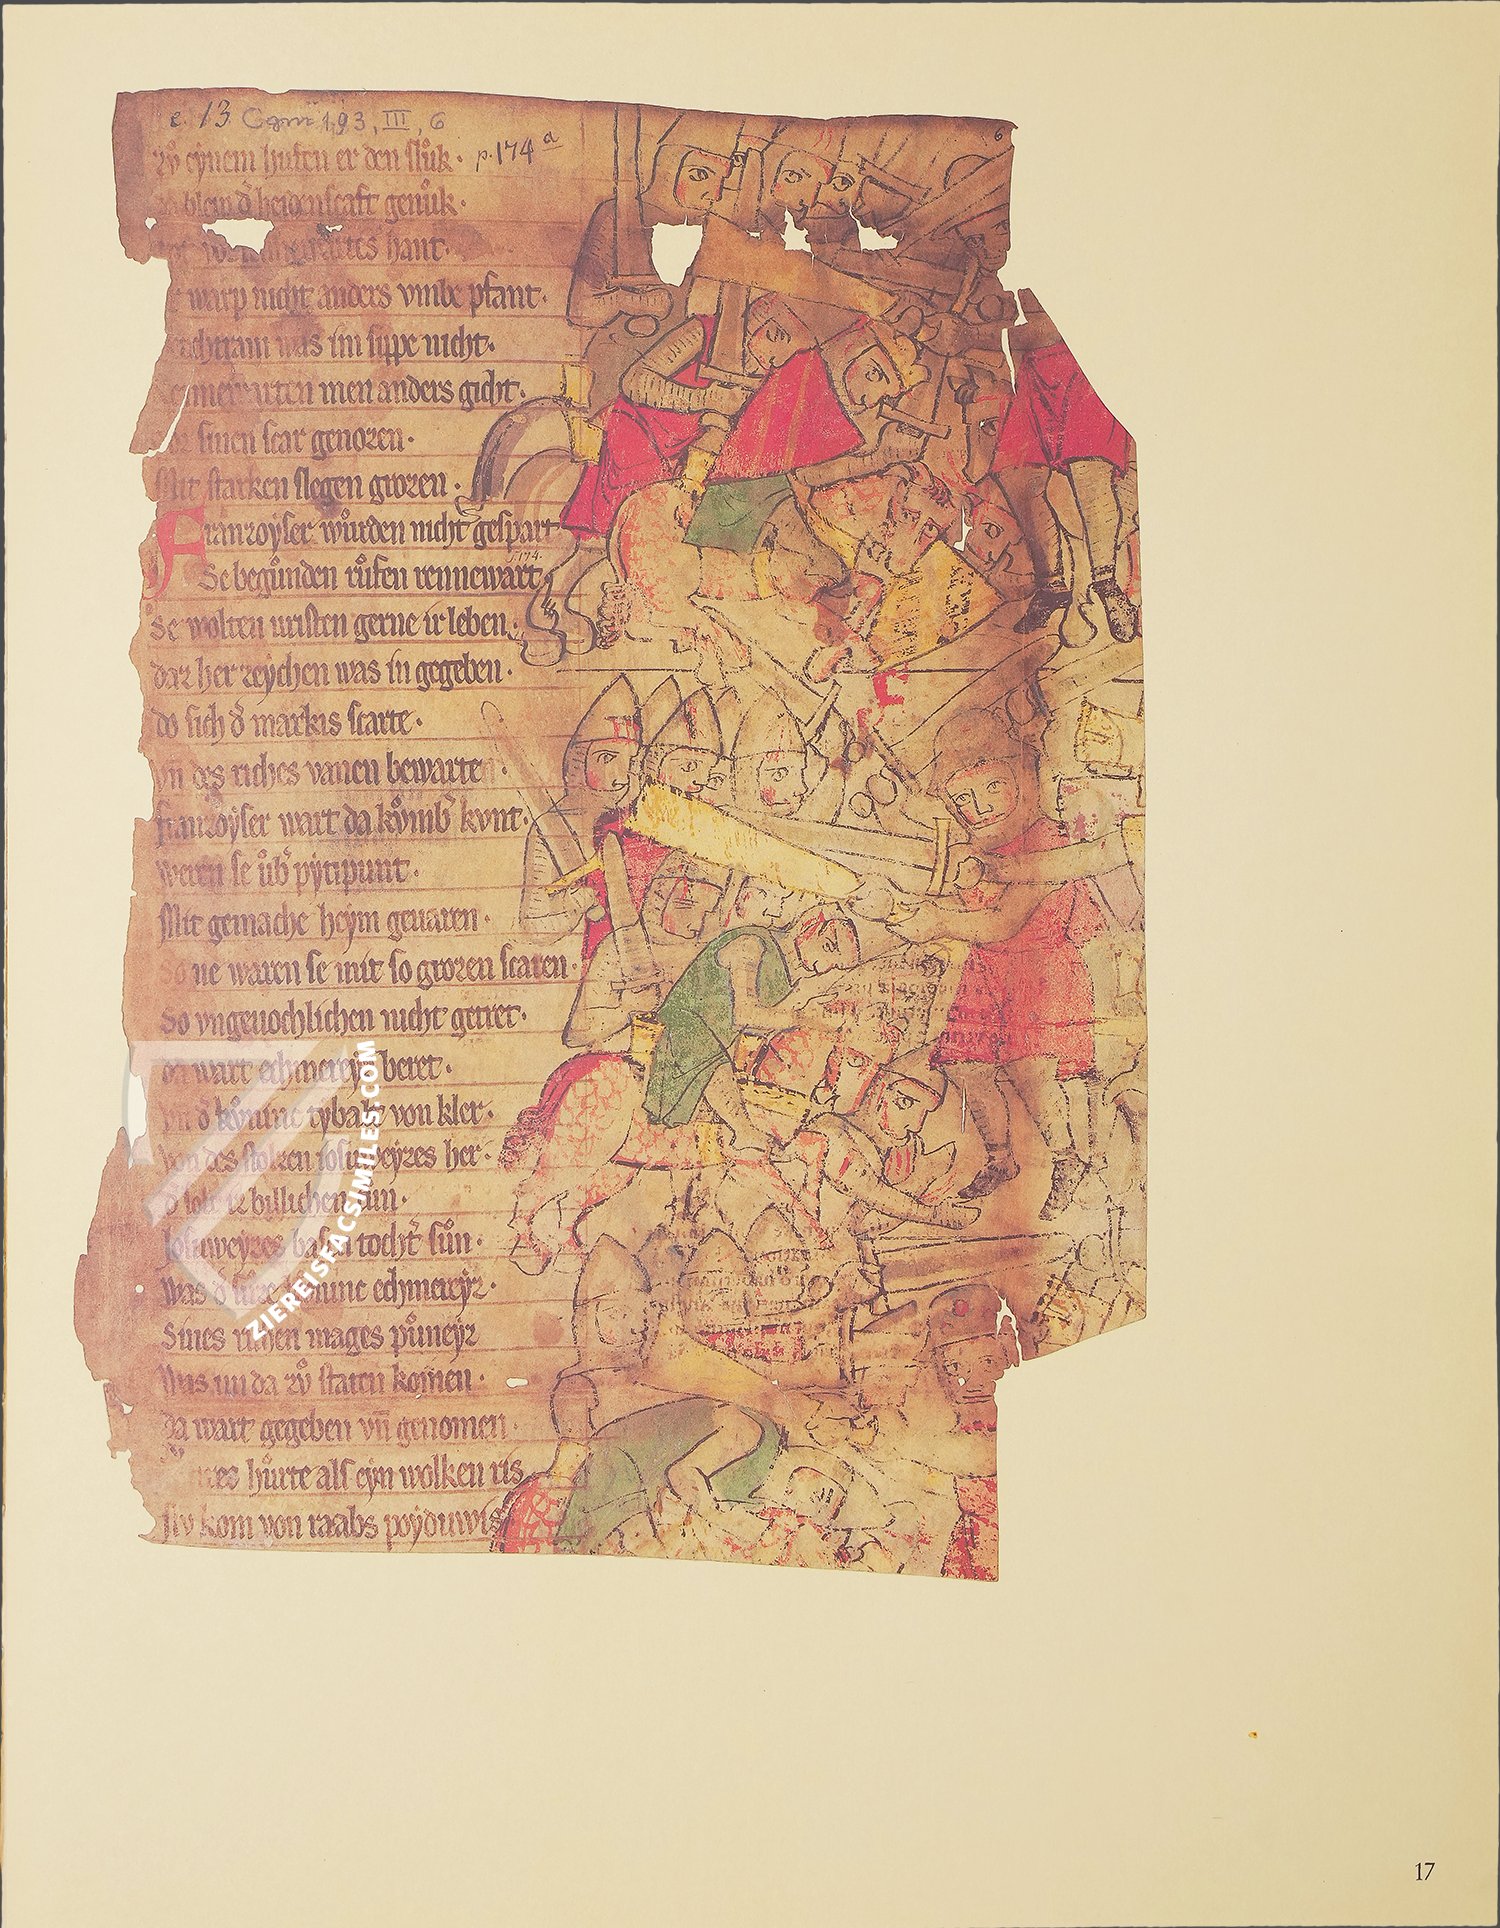 e. 13 Cgm 193, III, 6
6
zů eynem hufen er den slůk · p. 174 a
da bleip d̄ heidenscaft genůk ·
hant ·
warp nicht anders vmbe pfant ·
was im sippe nicht ·
men anders gicht ·
sinen scar genozen ·
Mit starken slegen grozen ·
Franzoyser wůrden nicht gespart
s. 174.
Se begůnden růfen rennewart
Se wolten uristen gerne ir leben ·
daz her zeychen was in gegeben ·
do sich d̄ markis scarte ·
vn̄ des riches vanen bewarte ·
franzoyser wart da kůmb̄ kvnt ·
weren se ůb̄ pytipunt ·
Mit gemache heym geuaren ·
So ne waren se mit so grozen scaren ·
So vngeuochlichen nicht getret ·
da wart echmereyz beret ·
vn̄ d̄ kůninc tybalt von kler ·
von des stolzen iosuweyzes her ·
d̄ solt iz billichen tun ·
Josuweyzes basen tocht̄ sůn ·
was d̄ kůninc echmereyz ·
Sines richen mages půneyz
Mus im da zů staten komen ·
da wart gegeben vn̄ genomen ·
hurte als eyn wolken ris
siv kom von raabs poyduwi
ZIEREISFACSIMILES.COM
17